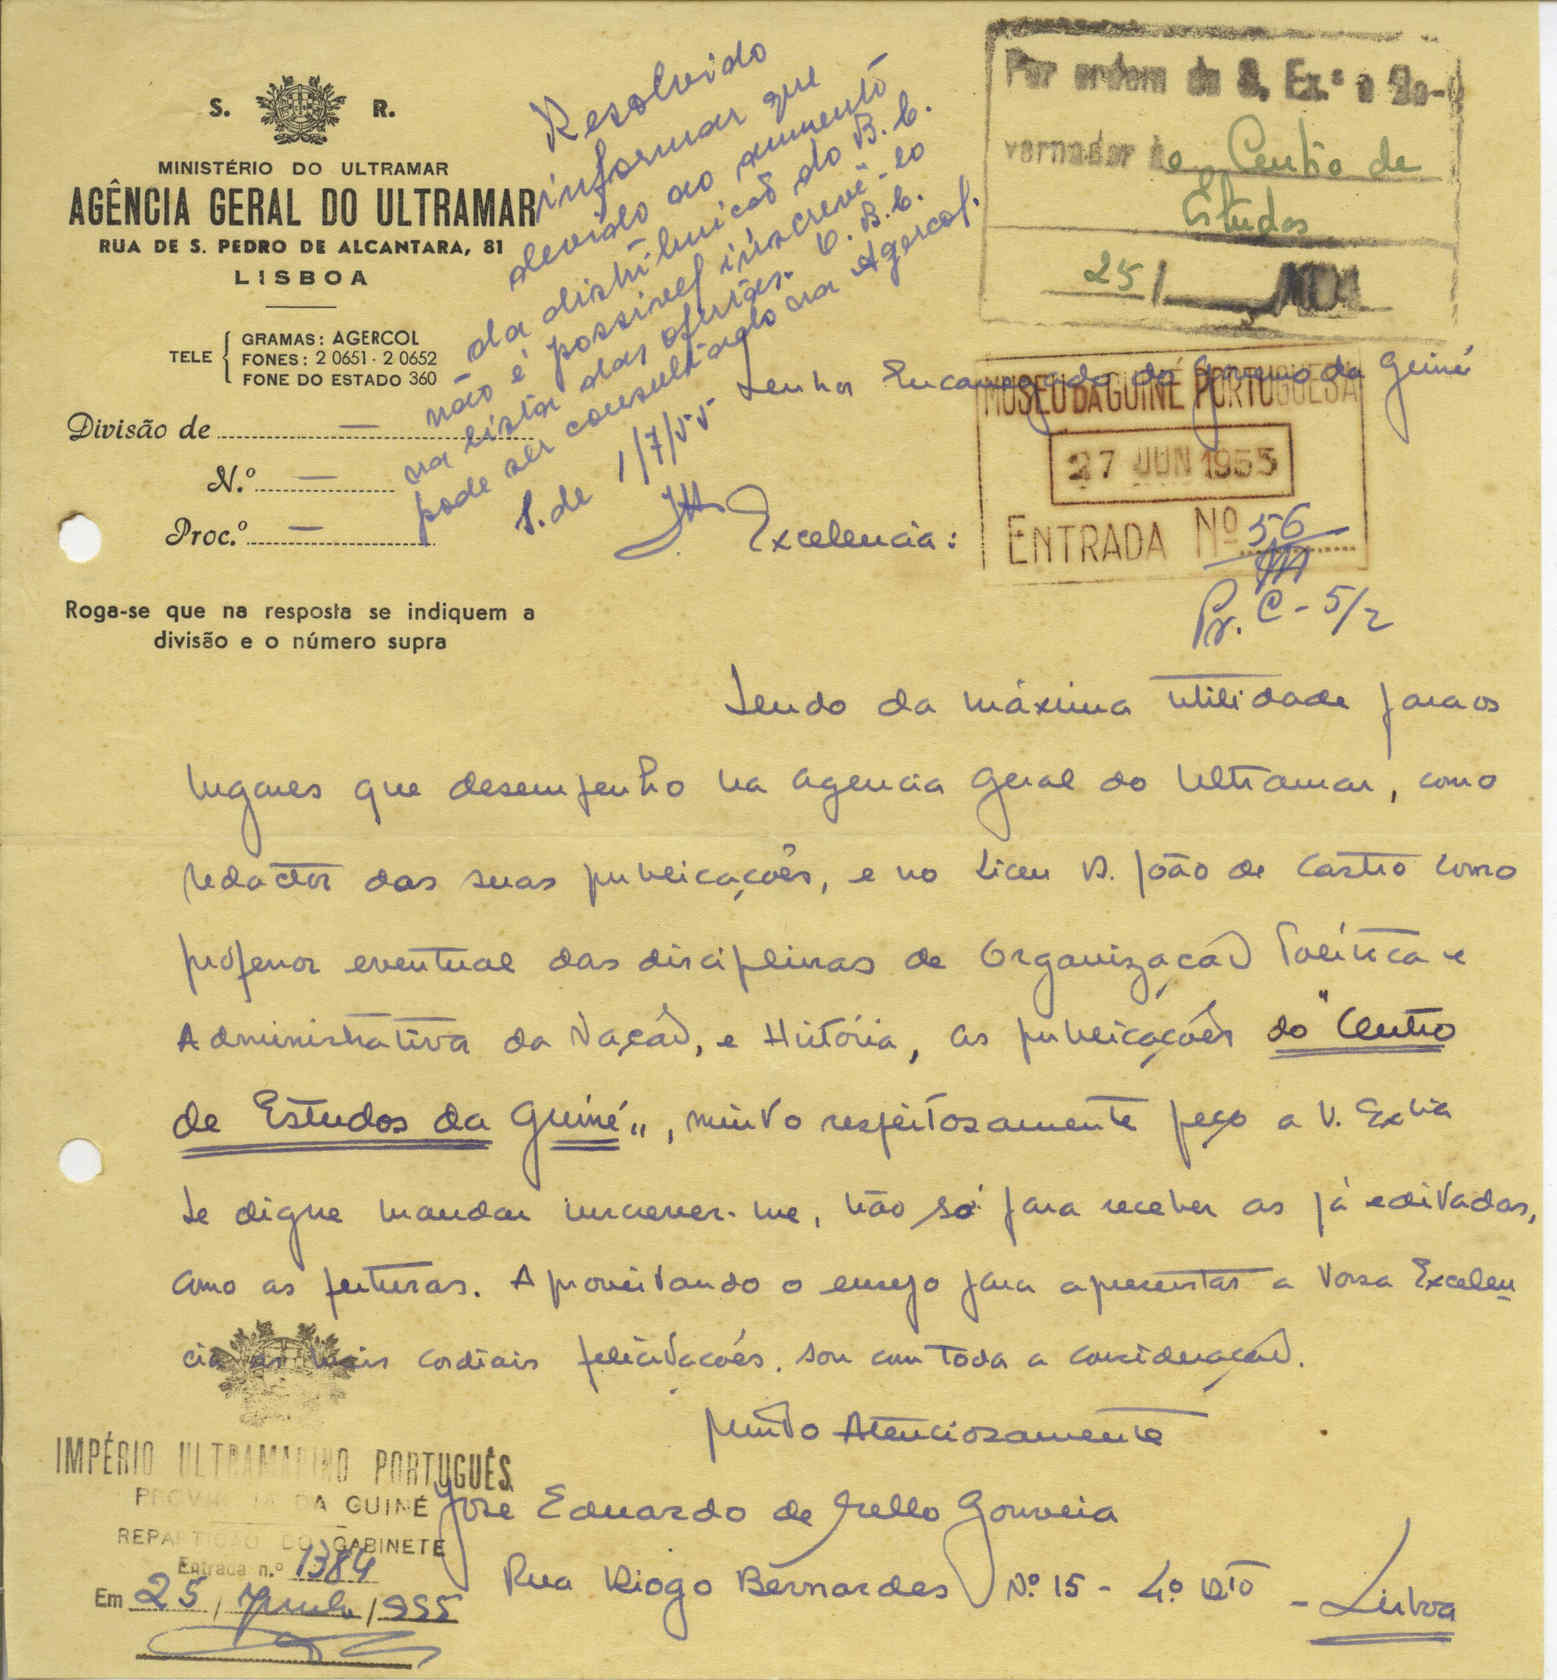 S. R.
MINISTÉRIO DO ULTRAMAR
AGÊNCIA GERAL DO ULTRAMAR
RUA DE S. PEDRO DE ALCANTARA, 81
LISBOA
TELE
GRAMAS: AGERCOL
FONES: 2 0651 - 2 0652
FONE DO ESTADO 360
Divisão de —
N.º —
Proc.º —
Roga-se que na resposta se indiquem a
divisão e o número supra
Resolvido
informar que
devido ao aumento
da distribuicaõ do B. C.
não é possivel inscrevê-lo
na lista das ofertas. O. B. C.
pode ser consultado na Agercol.
S. de 1/7/55
Por ordem de S. Ex.ª o Go-
vernador ao Centro de
Estudos
25/
MUSEU DA GUINÉ PORTUGUESA
27 JUN 1955
ENTRADA Nº 56
Pr. C - 5/2
Senhor Encarregado do Governo da Guiné
Excelencia:
Sendo da máxima utilidade para os
lugares que desempenho na Agencia Geral do Ultramar, como
redactor das suas publicações, e no Liceu D. João de Castro como
professor eventual das disciplinas de Organização Politica e
Administrativa da Nação, e História, as publicações do "Centro
de Estudos da Guiné", muito respeitosamente peço a V. Excia
se digne mandar inscrever-me, não só para receber as já editadas,
como as futuras. Aproveitando o ensejo para apresentar a Vossa Excelen
cia as mais cordiais felicitações. sou com toda a consideração.
Muito Atenciosamente
José Eduardo de Mello Gouveia
Rua Diogo Bernardes Nº 15 - 4º Dtº - Lisboa
IMPÉRIO ULTRAMARINO PORTUGUÊS
PROVINCIA DA GUINÉ
REPARTIÇÃO DO GABINETE
Entrada n.º 1384
Em 25 / Junho / 955